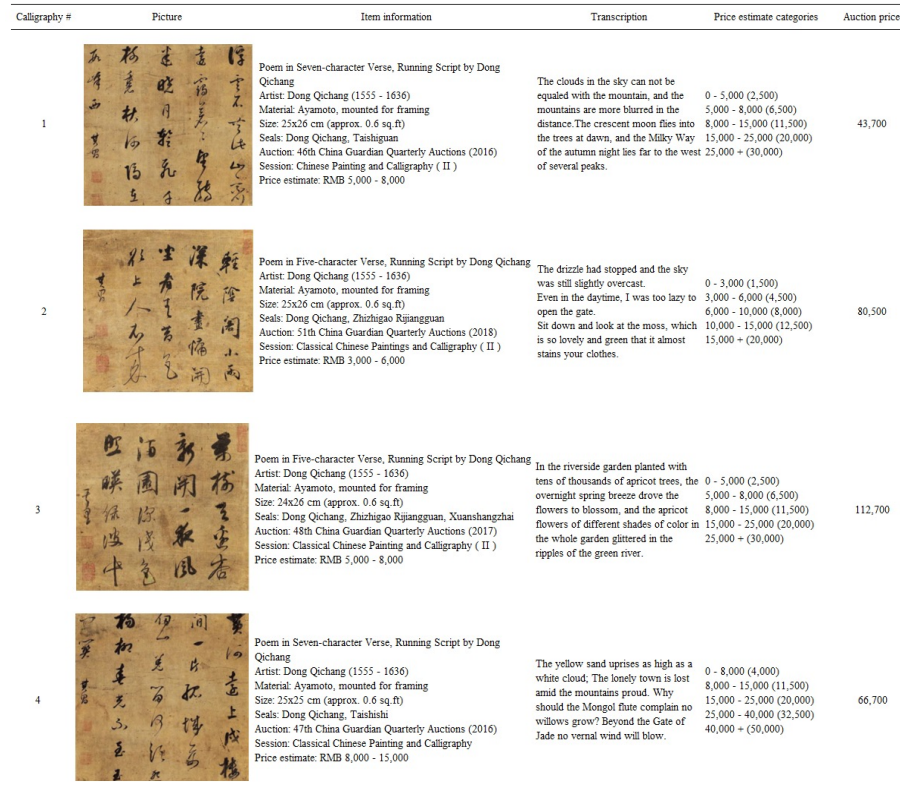 Calligraphy #
Picture
Item information
Transcription
Price estimate categories
Auction price
1
浮雲不共此山齊
山靄蒼蒼望轉
迷曉月暫飛千
樹裏秋河隔在
數峰西 其昌
Poem in Seven-character Verse, Running Script by Dong
Qichang
Artist: Dong Qichang (1555 - 1636)
Material: Ayamoto, mounted for framing
Size: 25x26 cm (approx. 0.6 sq.ft)
Seals: Dong Qichang, Taishiguan
Auction: 46th China Guardian Quarterly Auctions (2016)
Session: Chinese Painting and Calligraphy ( II )
Price estimate: RMB 5,000 - 8,000
The clouds in the sky can not be
equaled with the mountain, and the
mountains are more blurred in the
distance.The crescent moon flies into
the trees at dawn, and the Milky Way
of the autumn night lies far to the west
of several peaks.
0 - 5,000 (2,500)
5,000 - 8,000 (6,500)
8,000 - 15,000 (11,500)
15,000 - 25,000 (20,000)
25,000 + (30,000)
43,700
2
輕陰閣小雨
深院晝慵開
坐看蒼苔色
欲上人衣來
其昌
Poem in Five-character Verse, Running Script by Dong Qichang
Artist: Dong Qichang (1555 - 1636)
Material: Ayamoto, mounted for framing
Size: 25x26 cm (approx. 0.6 sq.ft)
Seals: Dong Qichang, Zhizhigao Rijiangguan
Auction: 51th China Guardian Quarterly Auctions (2018)
Session: Classical Chinese Paintings and Calligraphy ( II )
Price estimate: RMB 3,000 - 6,000
The drizzle had stopped and the sky
was still slightly overcast.
Even in the daytime, I was too lazy to
open the gate.
Sit down and look at the moss, which
is so lovely and green that it almost
stains your clothes.
0 - 3,000 (1,500)
3,000 - 6,000 (4,500)
6,000 - 10,000 (8,000)
10,000 - 15,000 (12,500)
15,000 + (20,000)
80,500
3
萬樹江邊杏
新開一夜風
滿園深淺色
照映綠波中
Poem in Five-character Verse, Running Script by Dong Qichang
Artist: Dong Qichang (1555 - 1636)
Material: Ayamoto, mounted for framing
Size: 24x26 cm (approx. 0.6 sq.ft)
Seals: Dong Qichang, Zhizhigao Rijiangguan, Xuanshangzhai
Auction: 48th China Guardian Quarterly Auctions (2017)
Session: Classical Chinese Painting and Calligraphy ( II )
Price estimate: RMB 5,000 - 8,000
In the riverside garden planted with
tens of thousands of apricot trees, the
overnight spring breeze drove the
flowers to blossom, and the apricot
flowers of different shades of color in
the whole garden glittered in the
ripples of the green river.
0 - 5,000 (2,500)
5,000 - 8,000 (6,500)
8,000 - 15,000 (11,500)
15,000 - 25,000 (20,000)
25,000 + (30,000)
112,700
4
黃河遠上戍樓
間一片孤城萬
楊柳春光不度玉
門關 其昌
Poem in Seven-character Verse, Running Script by Dong
Qichang
Artist: Dong Qichang (1555 - 1636)
Material: Ayamoto, mounted for framing
Size: 25x25 cm (approx. 0.6 sq.ft)
Seals: Dong Qichang, Taishishi
Auction: 47th China Guardian Quarterly Auctions (2016)
Session: Classical Chinese Painting and Calligraphy
Price estimate: RMB 8,000 - 15,000
The yellow sand uprises as high as a
white cloud; The lonely town is lost
amid the mountains proud. Why
should the Mongol flute complain no
willows grow? Beyond the Gate of
Jade no vernal wind will blow.
0 - 8,000 (4,000)
8,000 - 15,000 (11,500)
15,000 - 25,000 (20,000)
25,000 - 40,000 (32,500)
40,000 + (50,000)
66,700